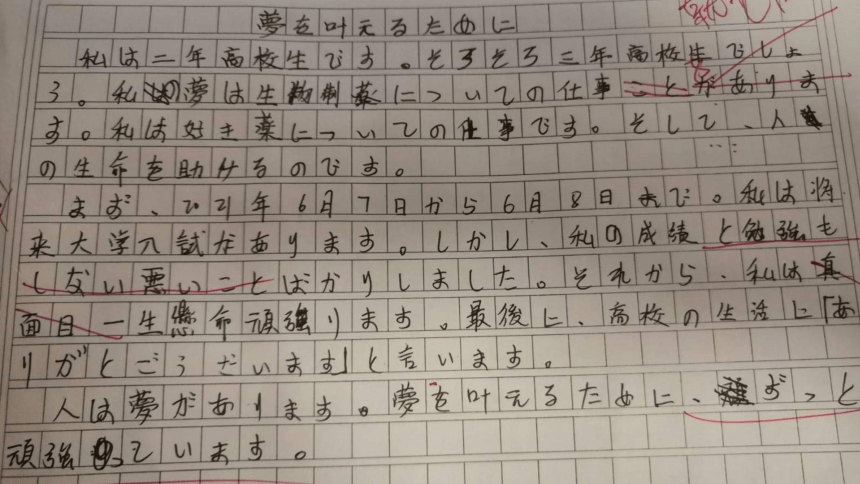 夢を叶えるために
私は二年高校生です。そろそろ三年高校生でしょ
う。私の夢は生物制薬についての仕事ことがありま
す。私は好き薬についての仕事です。そして、人
の生命を助けるのです。
まず、2021年6月7日から6月8日まで。私は将
来大学入試があります。しかし、私の成績と勉強も
しない悪いことばかりしました。それから、私は真
面目一生懸命頑強ります。最後に、高校の生活に「あ
りがとごうざいます」と言います。
人は夢があります。夢を叶えるために、ずっと
頑強っています。